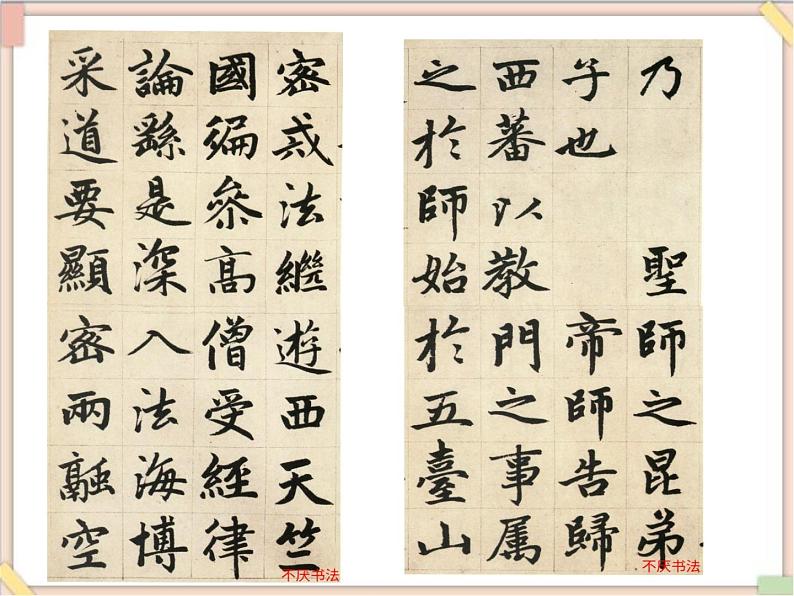 密戒法繼遊西天竺
國徧參高僧受經律
論繇是深入法海博
采道要顯密兩融空
不厌书法
乃 聖師之昆弟
子也 帝師告歸
西蕃以教門之事属
之於師始於五臺山
不厌书法